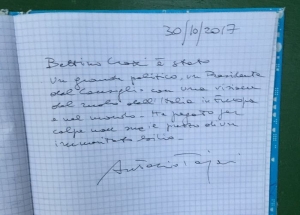 30/10/2017
Bettino Craxi è stato
un grande politico, un Presidente
del Consiglio con una visione
del ruolo dell'Italia in Europa
e nel mondo. Ha pagato per
colpe non sue e
Antonio Tajani